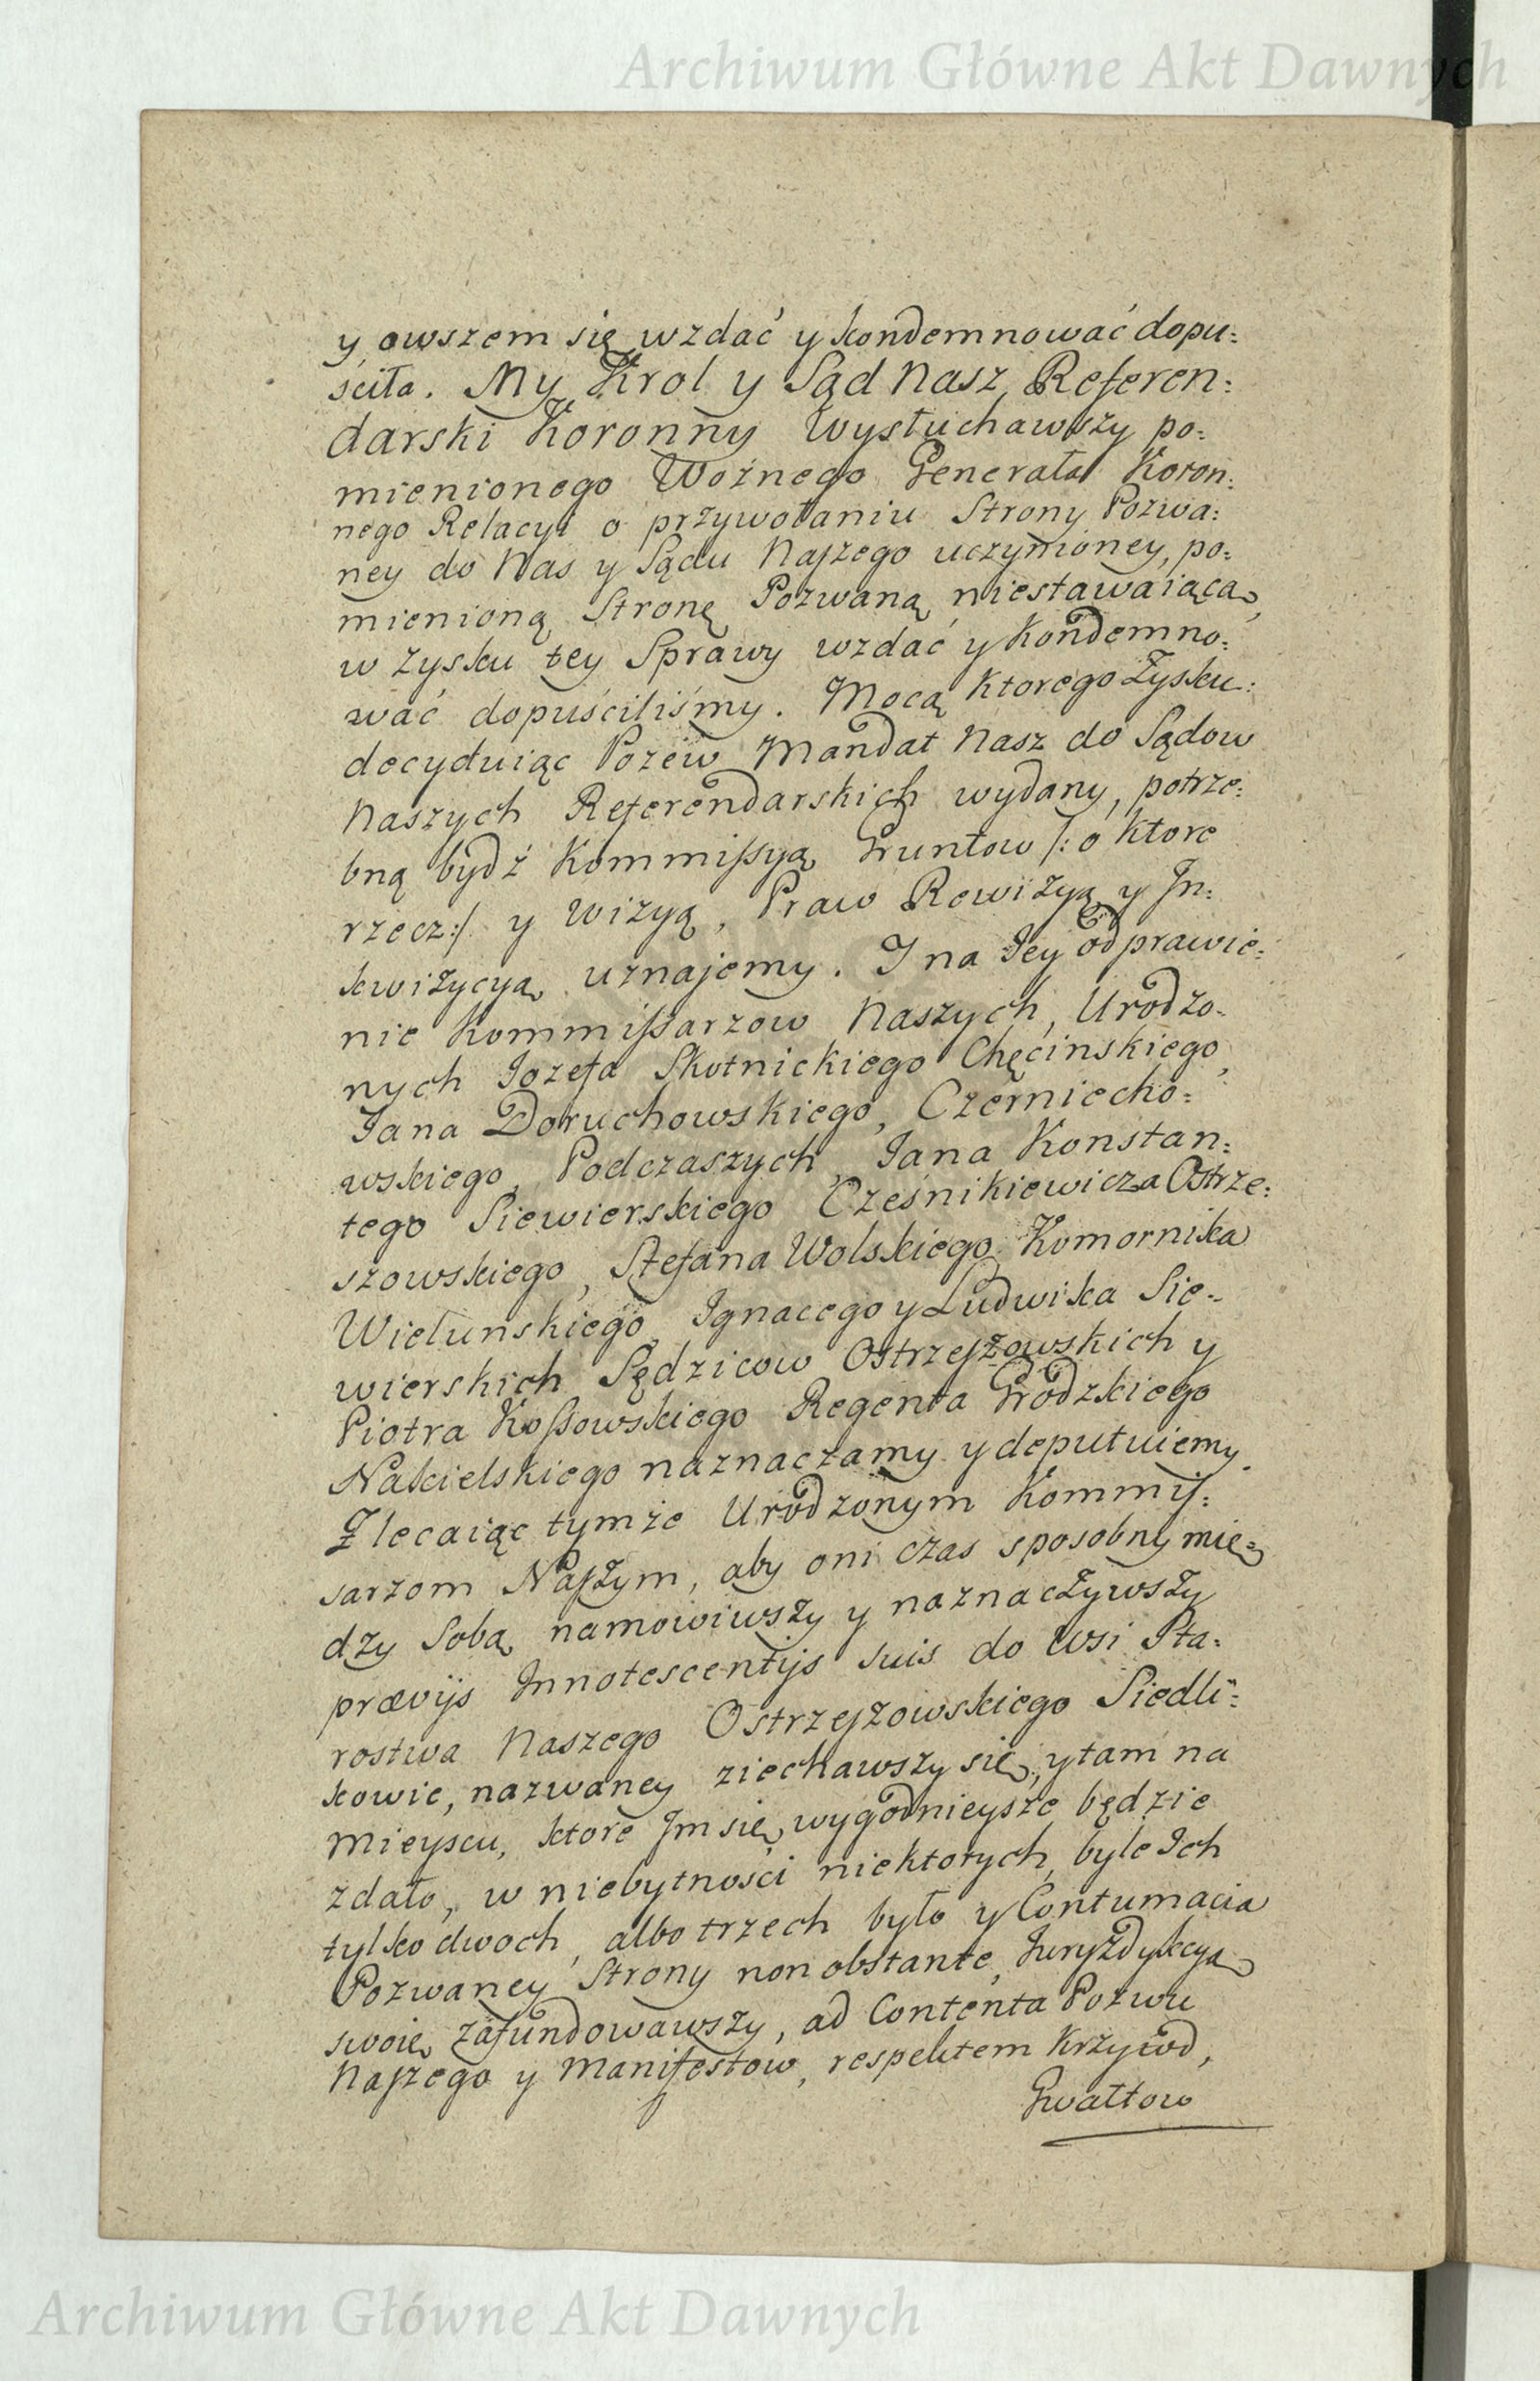 Archiwum Główne Akt Dawnych
y owszem się wzdać y kondemnować dopu:
ściła. My Krol y Sąd Nasz Referen:
darski Koronny Wysłuchawszy po:
mienionego Woźnego Generała Koron:
nego Relacyi o przywołaniu Strony Pozwa:
ney do Nas y Sądu Naſzego uczynioney, po:
mienioną Stronę Pozwaną niestawaiącą,
w zysku tey Sprawy wzdać y kondemno:
wać dopuściliśmy. Mocą ktorego Zysku:
decyduiąc Pozew Mandat Nasz do Sądow
Naszych Referendarskich wydany, potrze:
bną bydź Kommiſsyą Gruntow /: o ktore
rzecz :/ y wizyą, Praw Rewizyą y In:
kwizycyą uznajemy. I na Jey odprawie:
nie Kommiſsarzow Naszych, Urodzo:
nych Jozefa Skotnickiego Chęcinskiego,
Jana Doruchowskiego, Czerniecho:
wskiego Podczaszych, Jana Konstan:
tego Siewierskiego Cześnikiewicza Ostrze:
szowskiego, Stefana Wolskiego Komornika
Wielunskiego, Ignacego y Ludwika Sie:
wierskich Sędzicow Ostrzeſzowskich y
Piotra Koſsowskiego Regenta Grodzkiego
Nakielskiego naznaczamy y deputuiemy.
Zlecaiąc tymże Urodzonym Kommiſ:
sarzom Naſzym, aby oni czas sposobny mię:
dzy Sobą namowiwszy y naznaczywszy
prævijs Innotescentijs suis do Wsi Sta:
rostwa Naszego Ostrzeſzowskiego Siedli:
kowie, nazwaney ziechawszy się, y tam na
mieyscu, ktore Im się wygodnieysze będzie
zdało, w niebytności niektorych, byle Ich
tylko dwoch, albo trzech było y Contumacia
Pozwaney Strony non obstante, Juryzdykcyą
swoię zafundowawszy, ad Contenta Pozwu
Naſzego y Manifestow, respektem Krzywd,
Gwałtow
Archiwum Główne Akt Dawnych